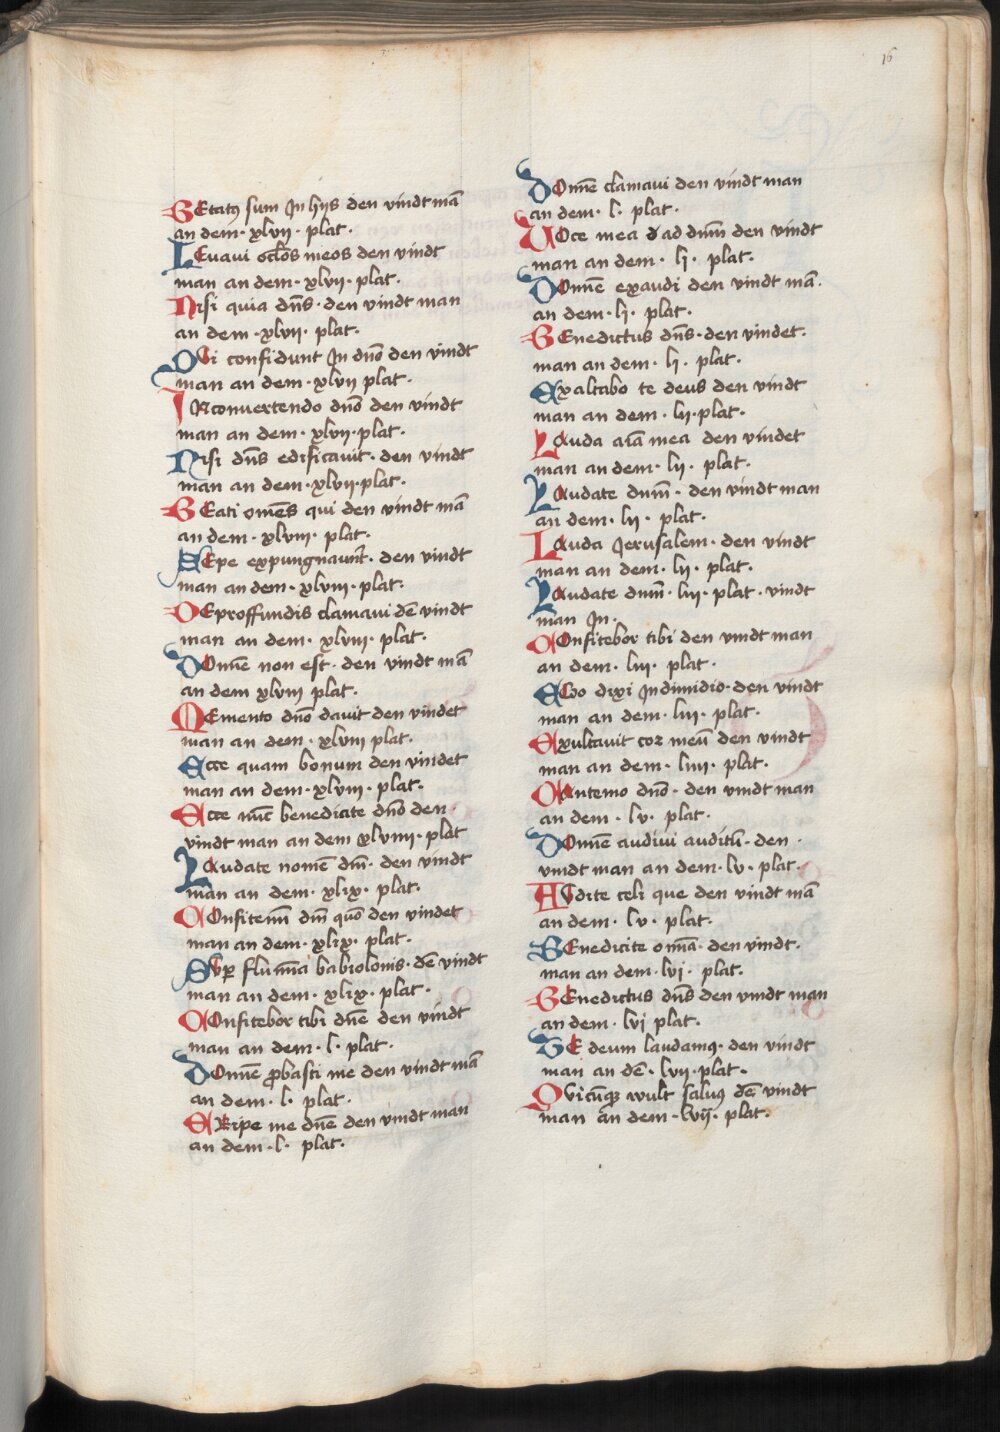 16
BEtatꝰ sum In hijs den vindt mā
an dem · xlvij · plat ·
LEuaui oclōs meos den vindt
man an dem · xlvij · plat ·
NIsi quia dn̄s · den vindt man
an dem · xlvij · plat ·
QVi confidunt In dn̄o den vindt
man an dem · xlvij plat ·
INconuertendo dn̄o den vindt
man an dem · xlvij · plat ·
NIsi dn̄s edificauit · den vindt
man an dem · xlvij · plat ·
BEati omēs qui den vindt mā
an dem · xlviij · plat ·
SEpe expungnauūt · den vindt
man an dem · xlviij · plat ·
DEproffundis clamaui dē vindt
man an dem · xlviij · plat ·
DOmīe non est · den vindt mā
an dem xlviij plat ·
MEmento dn̄o dauit den vindet
man an dem · xlviij plat ·
Ecce quam bonum den vindet
man an dem · xlviij · plat ·
Ecce nūc benedicite dn̄o den ·
vindt man an dem xlviiij · plat
LAudate nomē dn̄i · den vindt
man an dem · xlix · plat ·
COnfitemī dn̄i quō den vindet
man an dem · xlix · plat ·
SVper flumīa babiolonis · dē vindt
man an dem · xlix · plat ·
COnfitebor tibi dn̄e den vindt
man an dem · l · plat ·
DOmīe probasti me den vindt mā
an dem · l · plat ·
ERipe me dn̄e den vindt man
an dem · l · plat ·
DOmīe clamaui den vindt man
an dem · l · plat ·
VOce mea d ad dnm̄ den vindt
man an dem · lj · plat ·
DOmīe exaudi den vindt mā ·
an dem · lj · plat ·
BEnedictus dn̄s · den vindet ·
man an dem · lj · plat ·
Exaltabo te deus den vindt
man an dem · lij · plat ·
LAuda aīa mea den vindet
man an dem · lij · plat ·
LAudate dnm̄ · den vindt man
an dem · lij · plat ·
LAuda Jerusalem · den vindt
man an dem · lij · plat ·
LAudate dnm̄ · liij · plat · vindt
man In ·
COnfitebor tibi den vindt man
an dem · liij · plat ·
EGo dixi Indimidio · den vindt
man an dem · liij · plat ·
Exultauit cor meū den vindt
man an dem · liiij · plat ·
CAntemo dn̄o · den vindt man
an dem · lv · plat ·
DOmīe audiui auditū · den ·
vindt man an dem · lv · plat ·
AVdite celi que den vindt mā
an dem · lv · plat ·
BEnedicite omīa · den vindt ·
man an dem · lvj · plat ·
BEnedictus dn̄s den vindt man
an dem · lvj plat ·
TE deum laudamꝰ · den vindt
man an dē · lvij · plat ·
QVicūqꝫ wult saluꝰ dē vindt
man an dem · lvij · plat ·